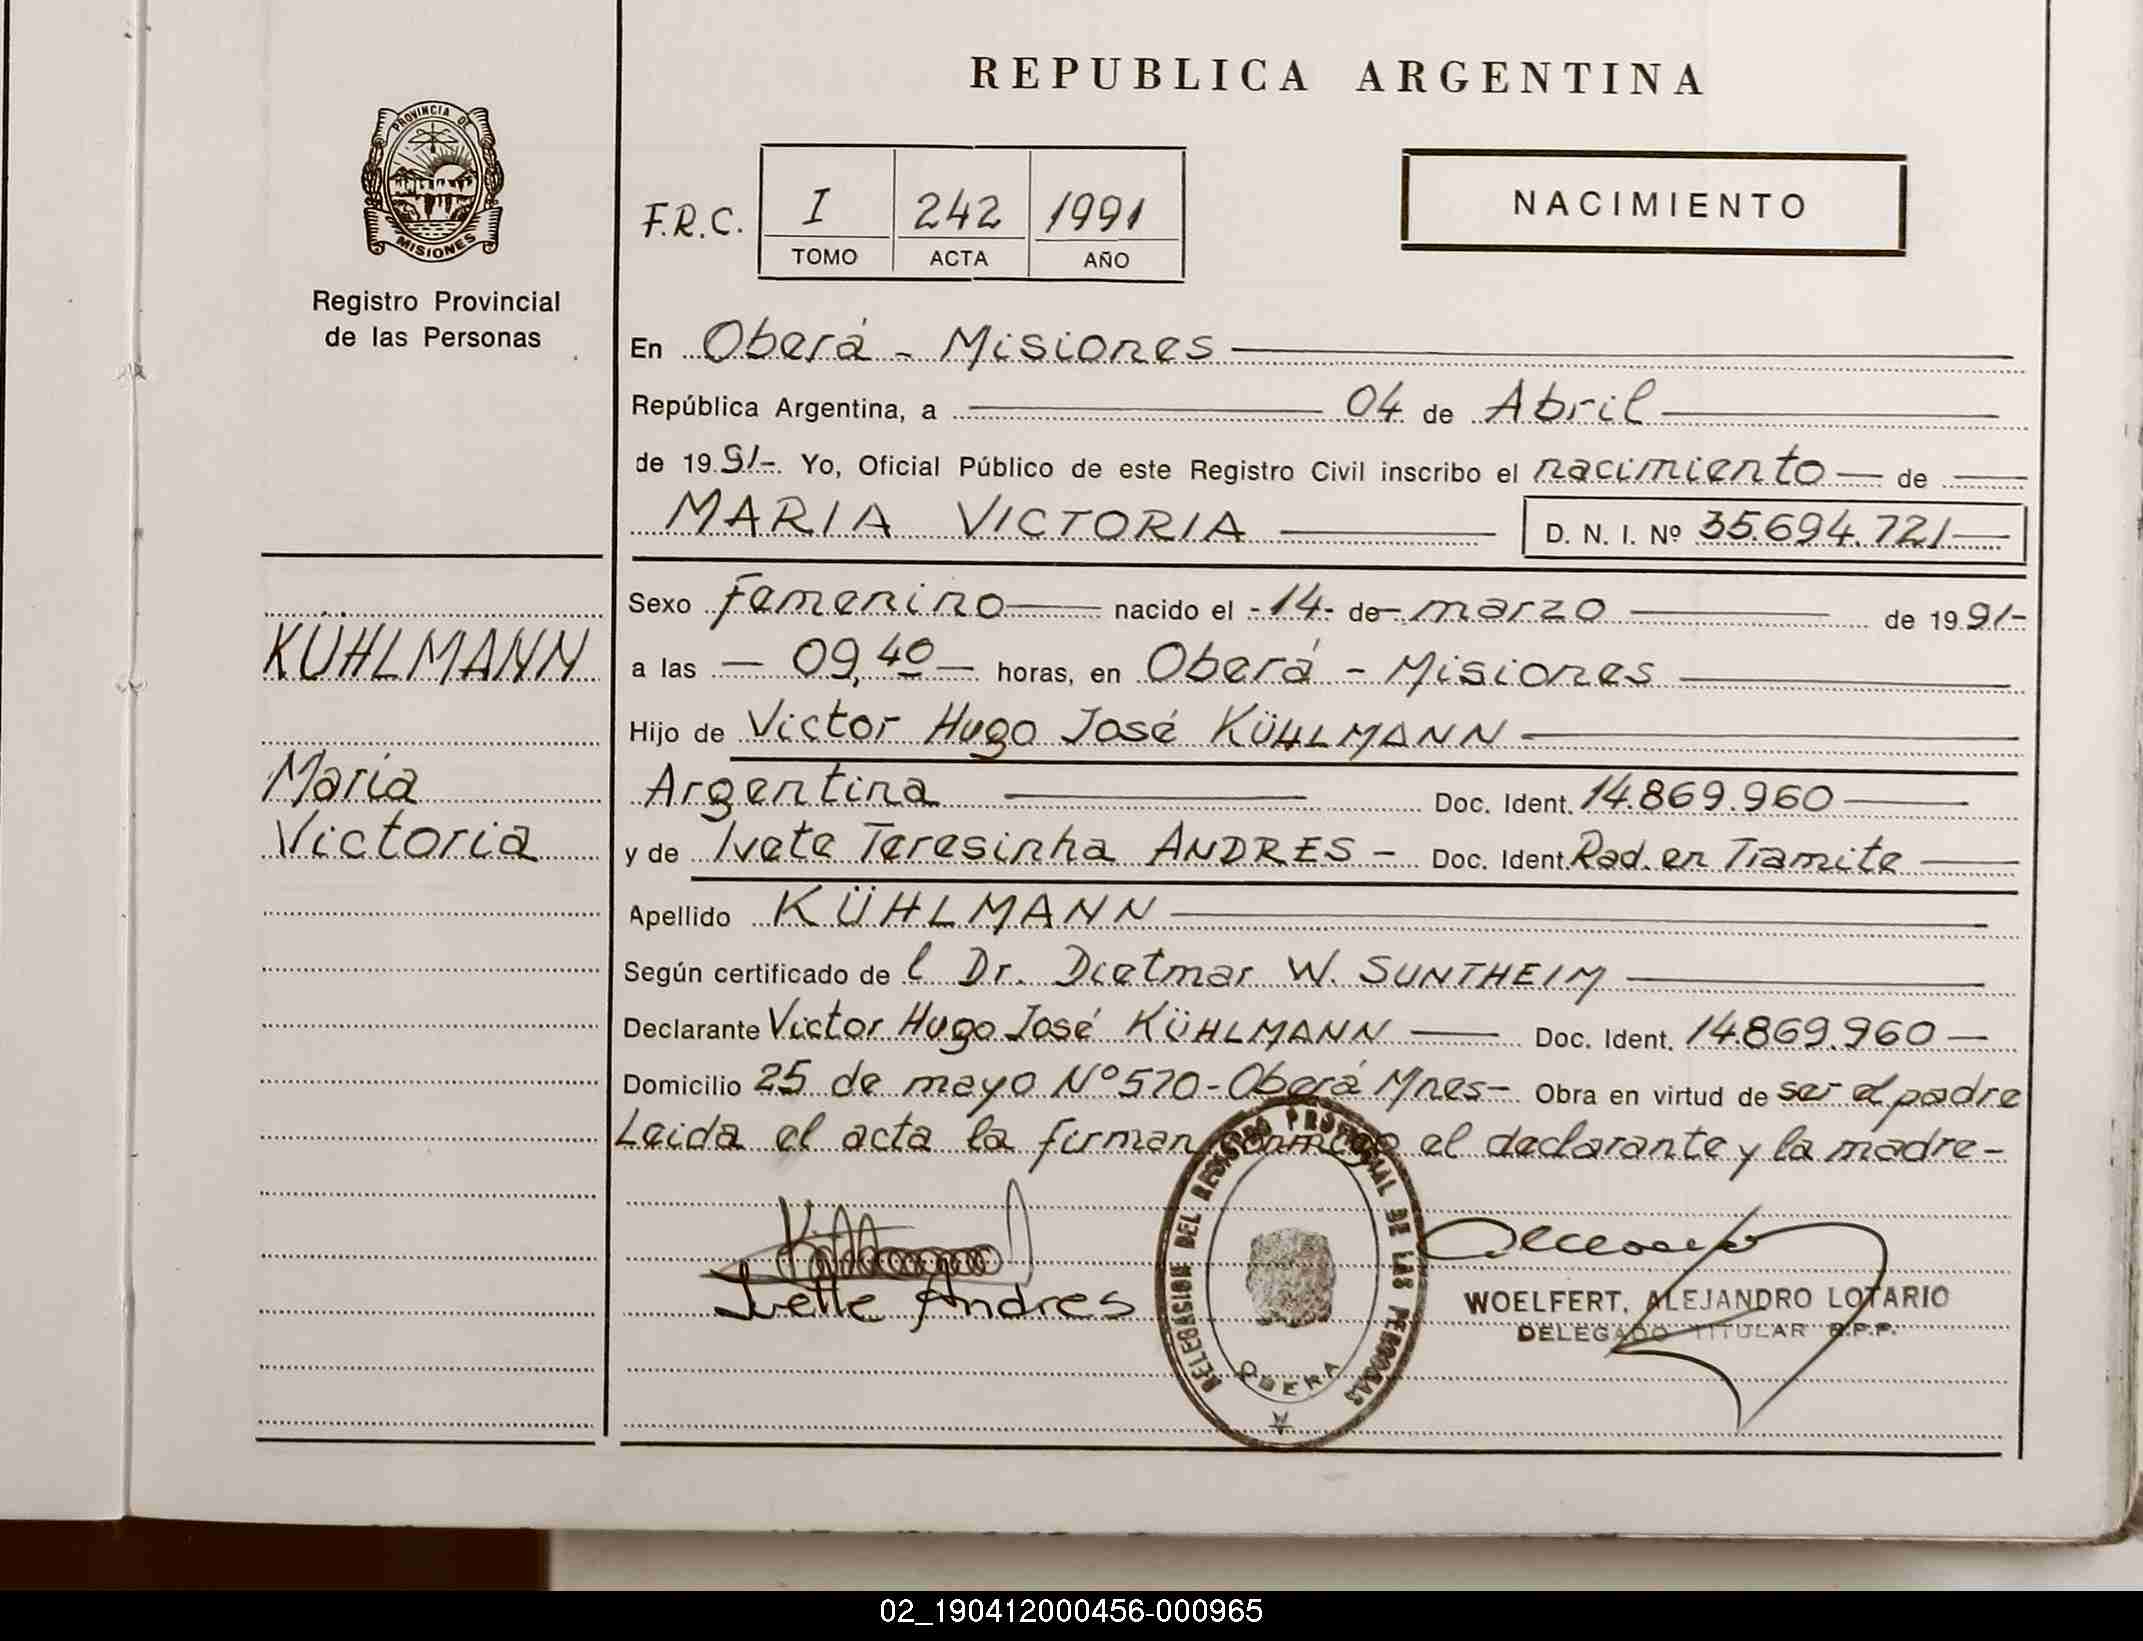 REPUBLICA ARGENTINA
PROVINCIA DE
MISIONES
Registro Provincial
de las Personas
F.R.C.
I 242 1991
TOMO ACTA AÑO
NACIMIENTO
En Oberá - Misiones
República Argentina, a 04 de Abril
de 1991- Yo, Oficial Público de este Registro Civil inscribo el nacimiento de
MARIA VICTORIA D. N. I. Nº 35.694.721
KÜHLMANN
Maria
Victoria
Sexo Femenino nacido el -14- de marzo de 1991-
a las 09,40 horas, en Oberá - Misiones
Hijo de Victor Hugo José KÜHLMANN
Argentina Doc. Ident. 14.869.960
y de Ivete Teresinha ANDRES - Doc. Ident. Rad. en Tramite
Apellido KÜHLMANN
Según certificado de l Dr. Dietmar W. SUNTHEIM
Declarante Victor Hugo José KÜHLMANN Doc. Ident. 14.869.960
Domicilio 25 de mayo Nº 570 - Oberá Mnes - Obra en virtud de ser el padre
Leida el acta la firman conmigo el declarante y la madre -
Ivette Andres
DELEGACION DEL REGISTRO PROVINCIAL DE LAS PERSONAS
OBERA
WOELFERT, ALEJANDRO LOTARIO
DELEGADO TITULAR R.P.P.
02_190412000456-000965